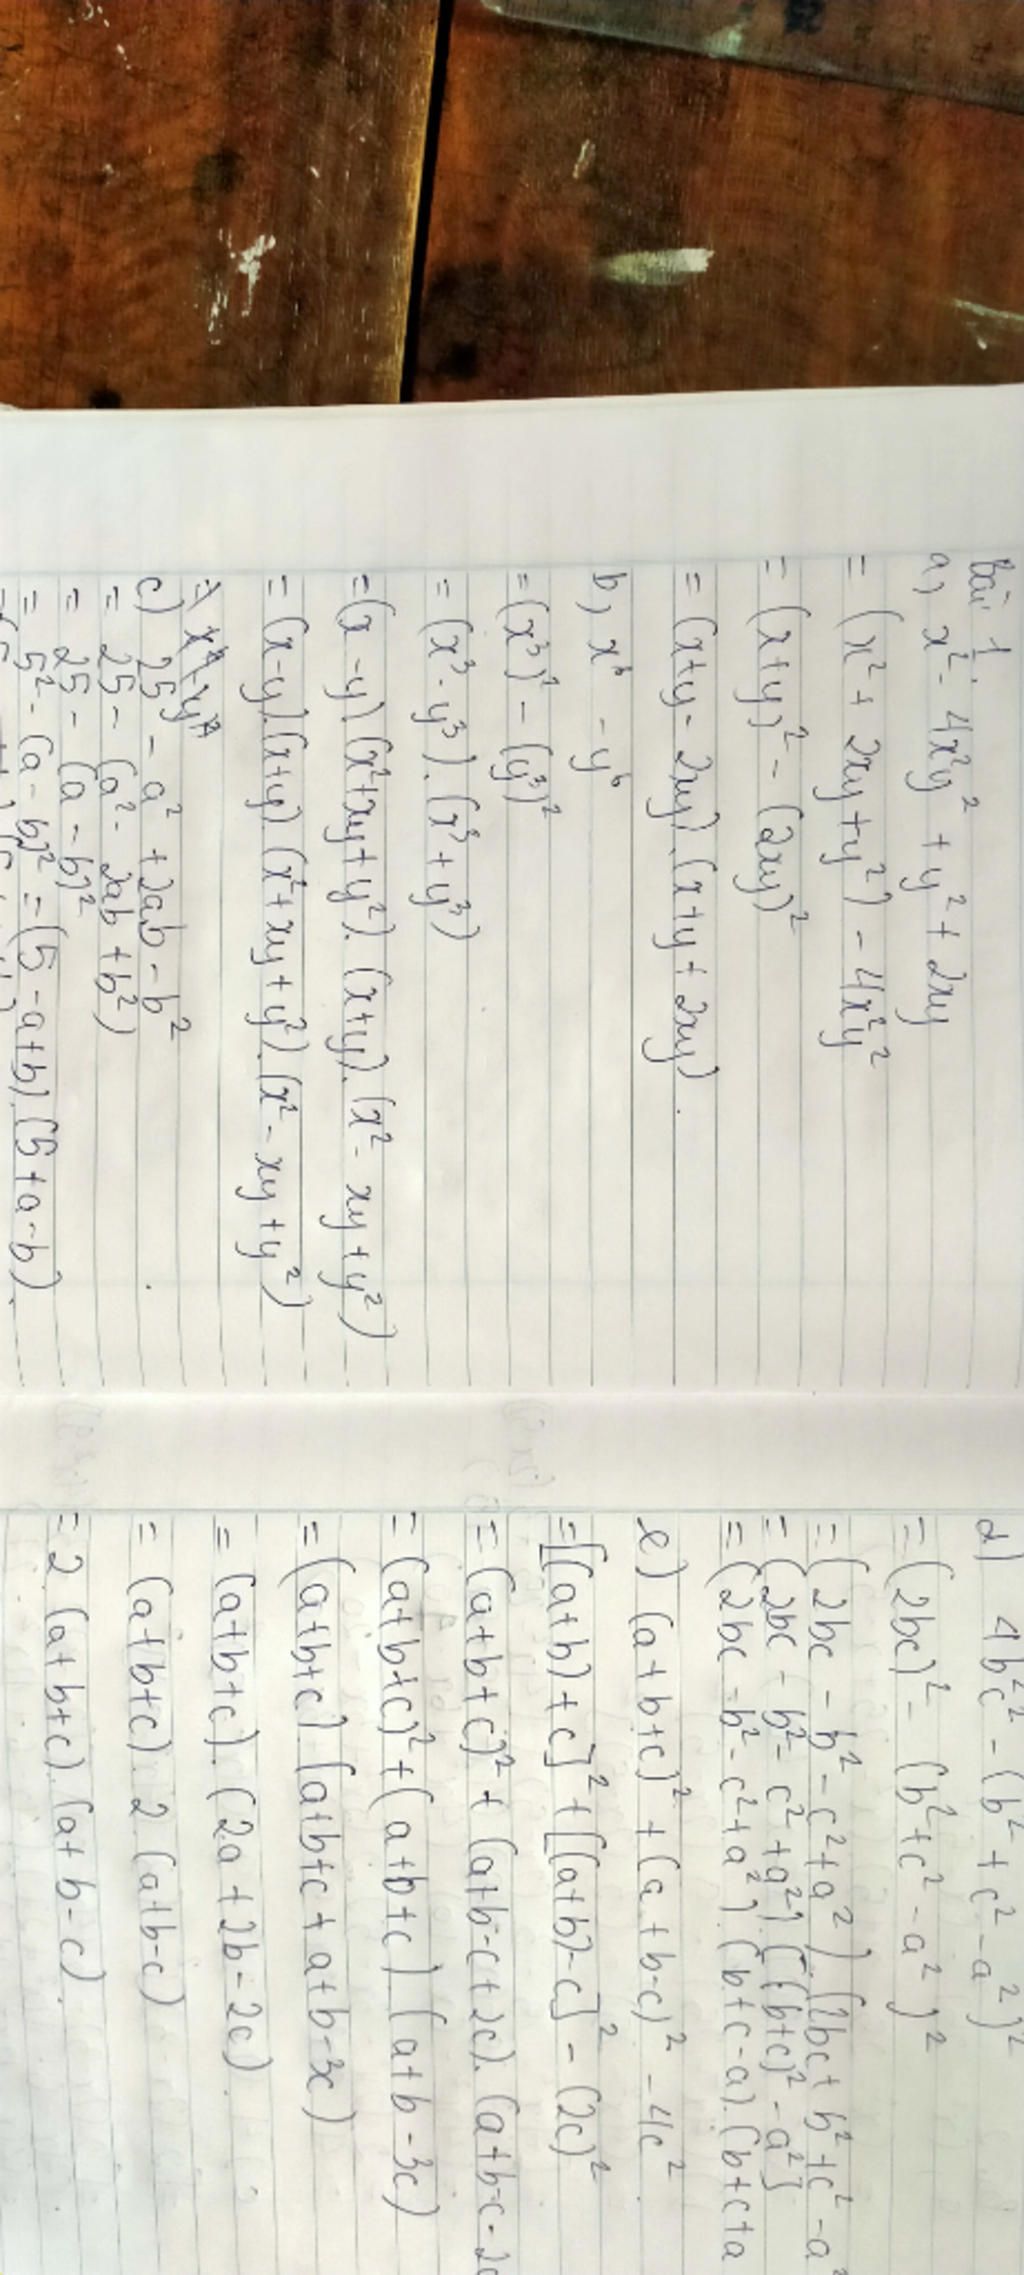 Bài 1
a, x² - 4x²y² + y² + 2xy
= (x² + 2xy + y²) - 4x²y²
= (x+y)² - (2xy)²
= (x+y - 2xy).(x+y + 2xy).
b, x⁶ - y⁶
= (x³)² - (y³)²
= (x³ - y³).(x³ + y³)
= (x - y)(x² + xy + y²).(x+y).(x² - xy + y²)
= (x-y).(x+y).(x² + xy + y²).(x² - xy + y²)
c) 25 - a² + 2ab - b²
= 25 - (a² - 2ab + b²)
= 25 - (a - b)²
= 5² - (a - b)² = (5 - a+b).(5+a-b)
d) 4b²c² - (b² + c² - a²)²
= (2bc)² - (b² + c² - a²)²
= (2bc - b² - c² + a²)(2bc + b² + c² - a²
= (2bc - b² - c² + a²)[(b+c)² - a²]
= (2bc - b² - c² + a²)(b+c-a).(b+c+a
e) (a+b+c)² + (a+b-c)² - 4c²
= [(a+b)+c]² + [(a+b)-c]² - (2c)²
= (a+b+c)² + (a+b-c+2c).(a+b-c-2c
= (a+b+c)² + (a+b+c).(a+b-3c)
= (a+b+c).(a+b+c+a+b-3c)
= (a+b+c).(2a+2b-2c)
= (a+b+c).2.(a+b-c)
= 2.(a+b+c).(a+b-c).